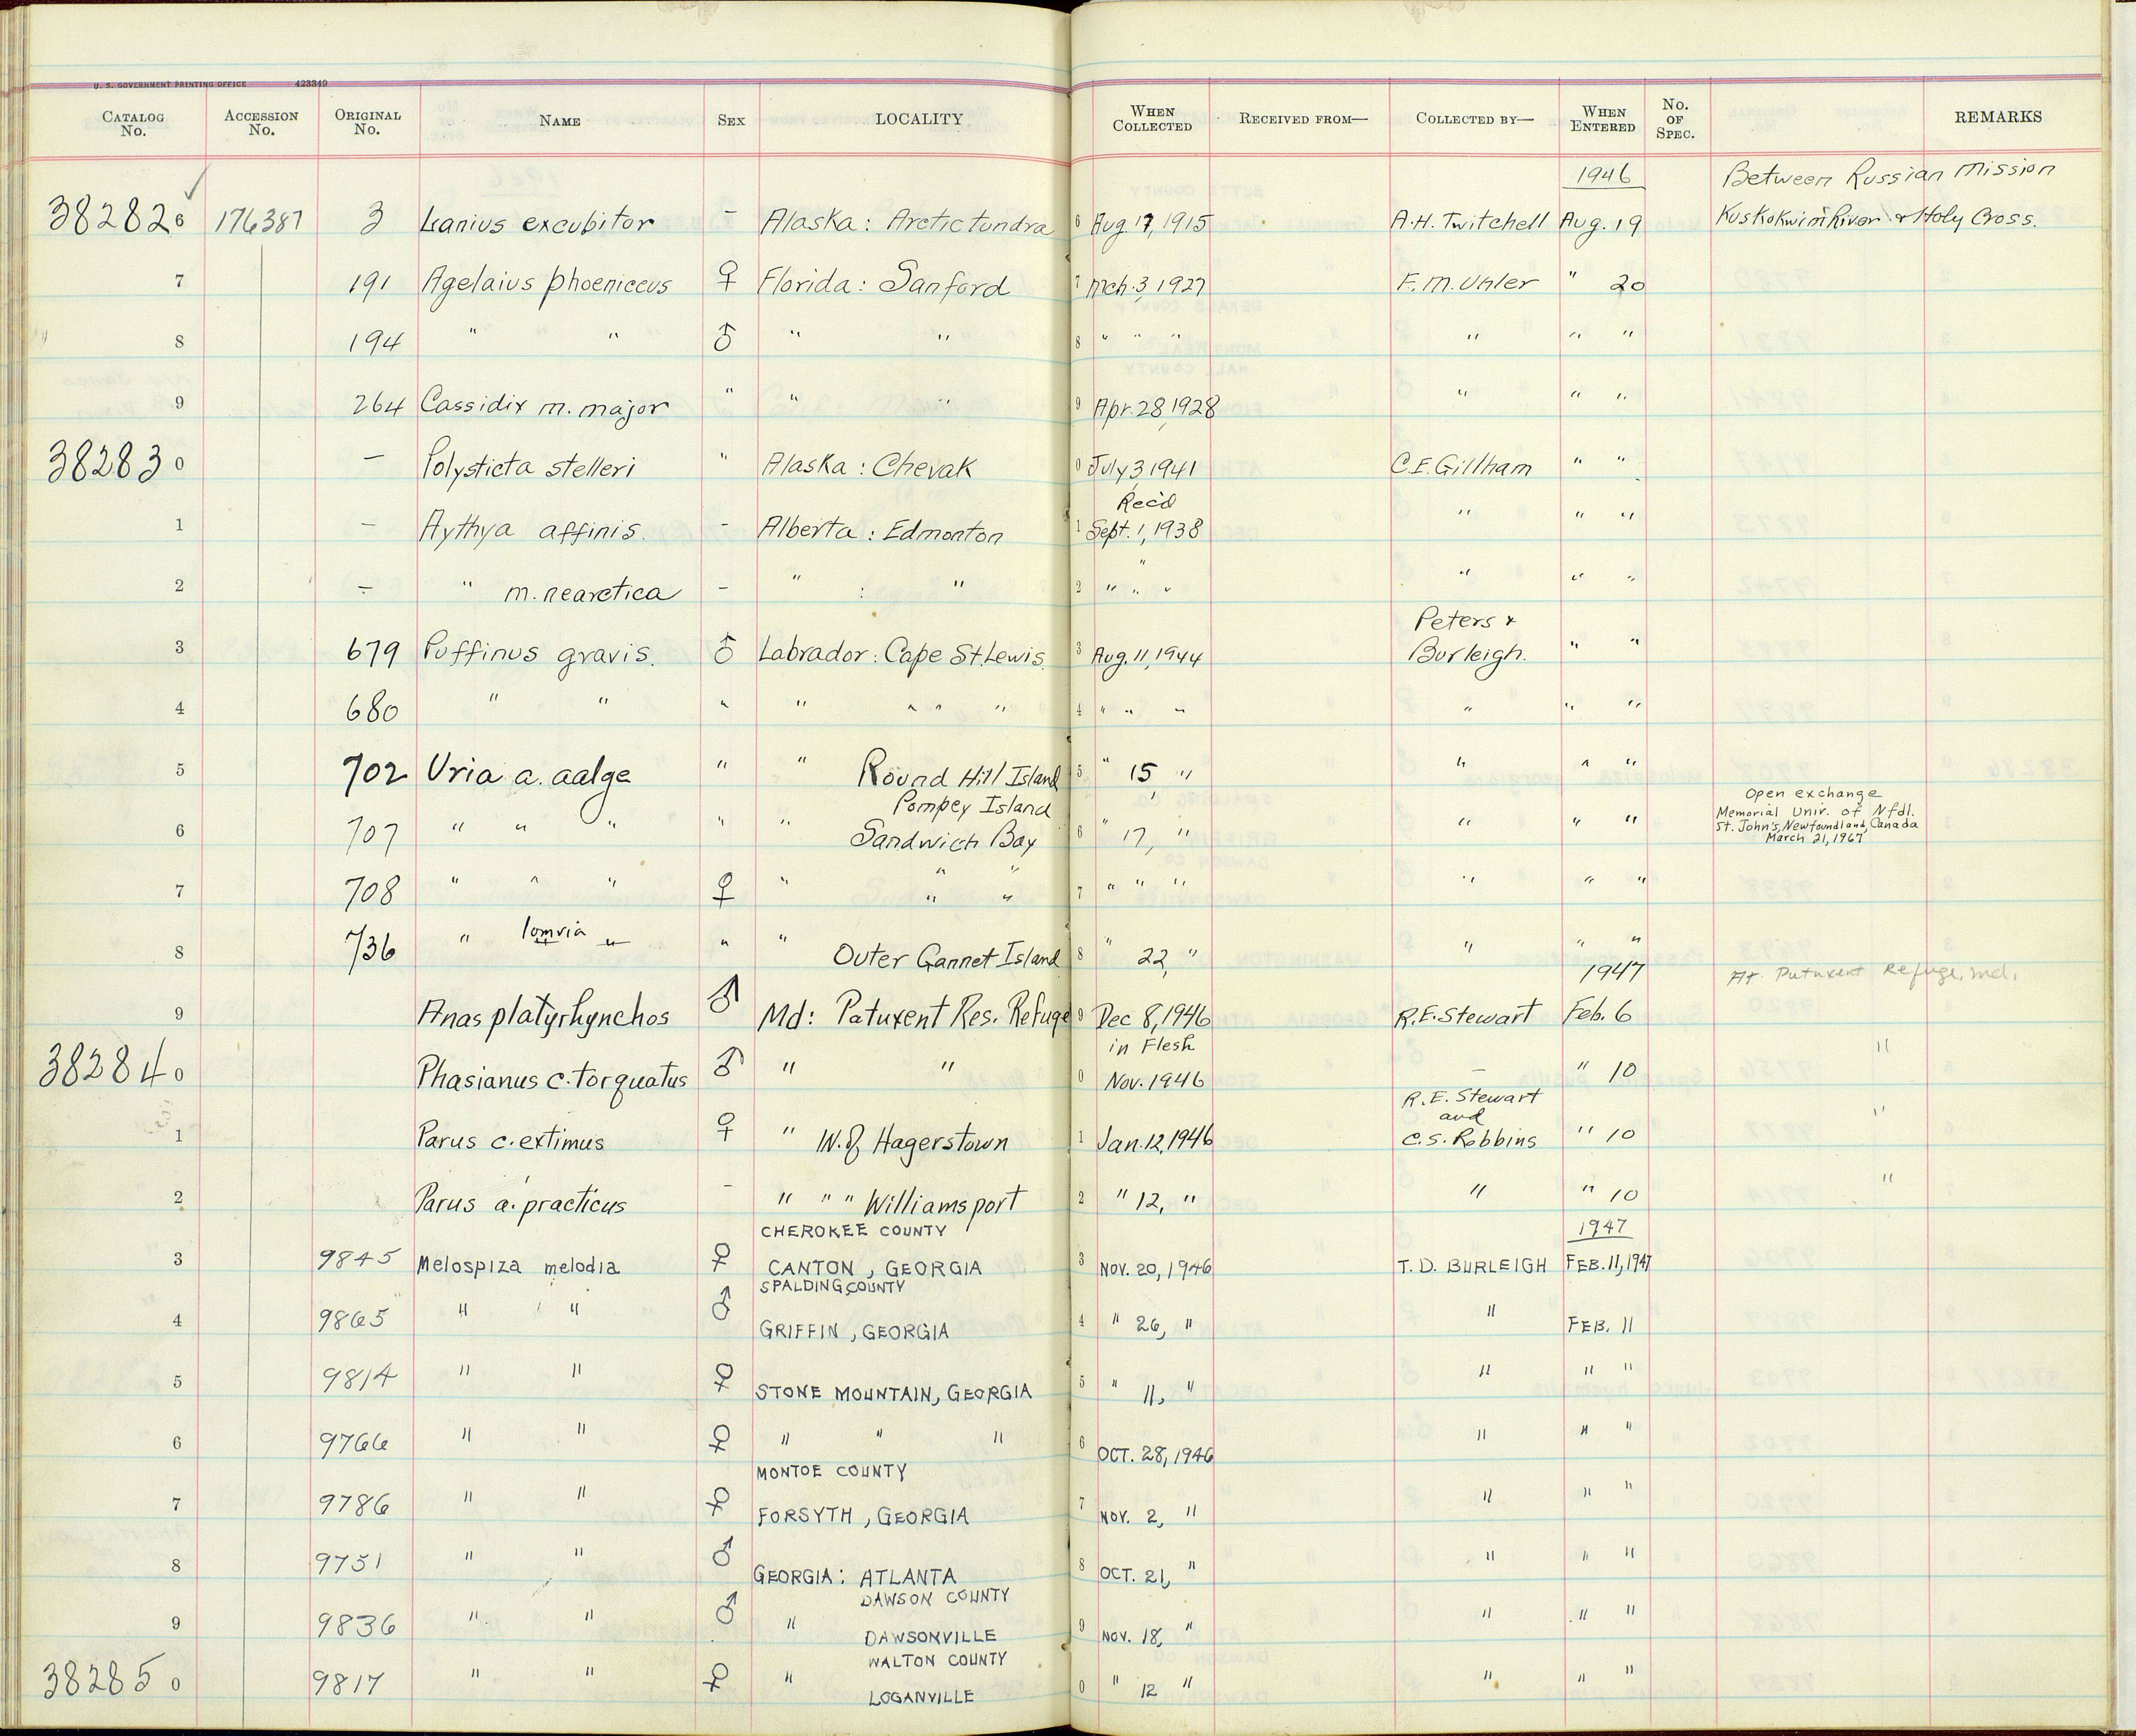 U. S. GOVERNMENT PRINTING OFFICE 423349
CATALOG No. ACCESSION No. ORIGINAL No. NAME SEX LOCALITY WHEN COLLECTED RECEIVED FROM— COLLECTED BY— WHEN ENTERED No. OF SPEC. REMARKS
1946 Between Russian Mission
✓
382826 176387 3 Lanius excubitor - Alaska: Arctic tundra 6 Aug. 17, 1915 A.H. Twitchell Aug. 19 Kuskokwim River & Holy Cross.
7 191 Agelaius phoeniceus ♀ Florida: Sanford 7 Mch. 3, 1927 F.M. Uhler " 20
8 194 " " ♂ " " 8 " " " " " "
9 264 Cassidix m. major " " " 9 Apr. 28, 1928 " " "
382830 — Polysticta stelleri " Alaska: Chevak 0 July 3, 1941 C.E. Gillham " "
Rec'd
1 - Aythya affinis. - Alberta: Edmonton 1 Sept. 1, 1938 " " "
2 - " m. nearctica - " : " 2 " " " " " "
Peters &
3 679 Puffinus gravis. ♂ Labrador: Cape St. Lewis. 3 Aug. 11, 1944 Burleigh. " "
4 680 " " " " " " " 4 " " " " " "
5 702 Uria a. aalge " " Round Hill Island 5 " 15, " " " "
Pompey Island Open exchange
6 707 " " " " " Sandwich Bay 6 " 17, " " " " Memorial Univ. of Nfdl.
St. John's, Newfoundland, Canada
March 21, 1967
7 708 " " " ♀ " " " " " 7 " " " " " "
8 736 " lomvia " " " Outer Gannet Island 8 " 22, " " " "
1947 At Patuxent Refuge, Md.
9 Anas platyrhynchos ♂ Md: Patuxent Res. Refuge 9 Dec 8, 1946 R.E. Stewart Feb. 6
in Flesh
382840 Phasianus c. torquatus ♂ " " 0 Nov. 1946 — " 10 "
R.E. Stewart
and
1 Parus c. extimus ♀ " W. of Hagerstown 1 Jan. 12, 1946 C.S. Robbins " 10 "
2 Parus a. practicus - " " " Williamsport 2 " 12, " " " 10 "
CHEROKEE COUNTY 1947
3 9845 Melospiza melodia ♀ CANTON, GEORGIA 3 NOV. 20, 1946 T. D. BURLEIGH FEB. 11, 1947
SPALDING COUNTY
4 9865 " " ♂ GRIFFIN, GEORGIA 4 " 26, " " FEB. 11
5 9814 " " ♀ STONE MOUNTAIN, GEORGIA 5 " 11, " " " "
6 9766 " " ♀ " " " 6 OCT. 28, 1946 " " "
MONTOE COUNTY
7 9786 " " ♀ FORSYTH, GEORGIA 7 NOV. 2, " " " "
8 9751 " " ♂ GEORGIA: ATLANTA 8 OCT. 21, " " " "
DAWSON COUNTY
9 9836 " " ♂ " DAWSONVILLE 9 NOV. 18, " " " "
WALTON COUNTY
382850 9817 " " ♀ " LOGANVILLE 0 " 12 " " " "